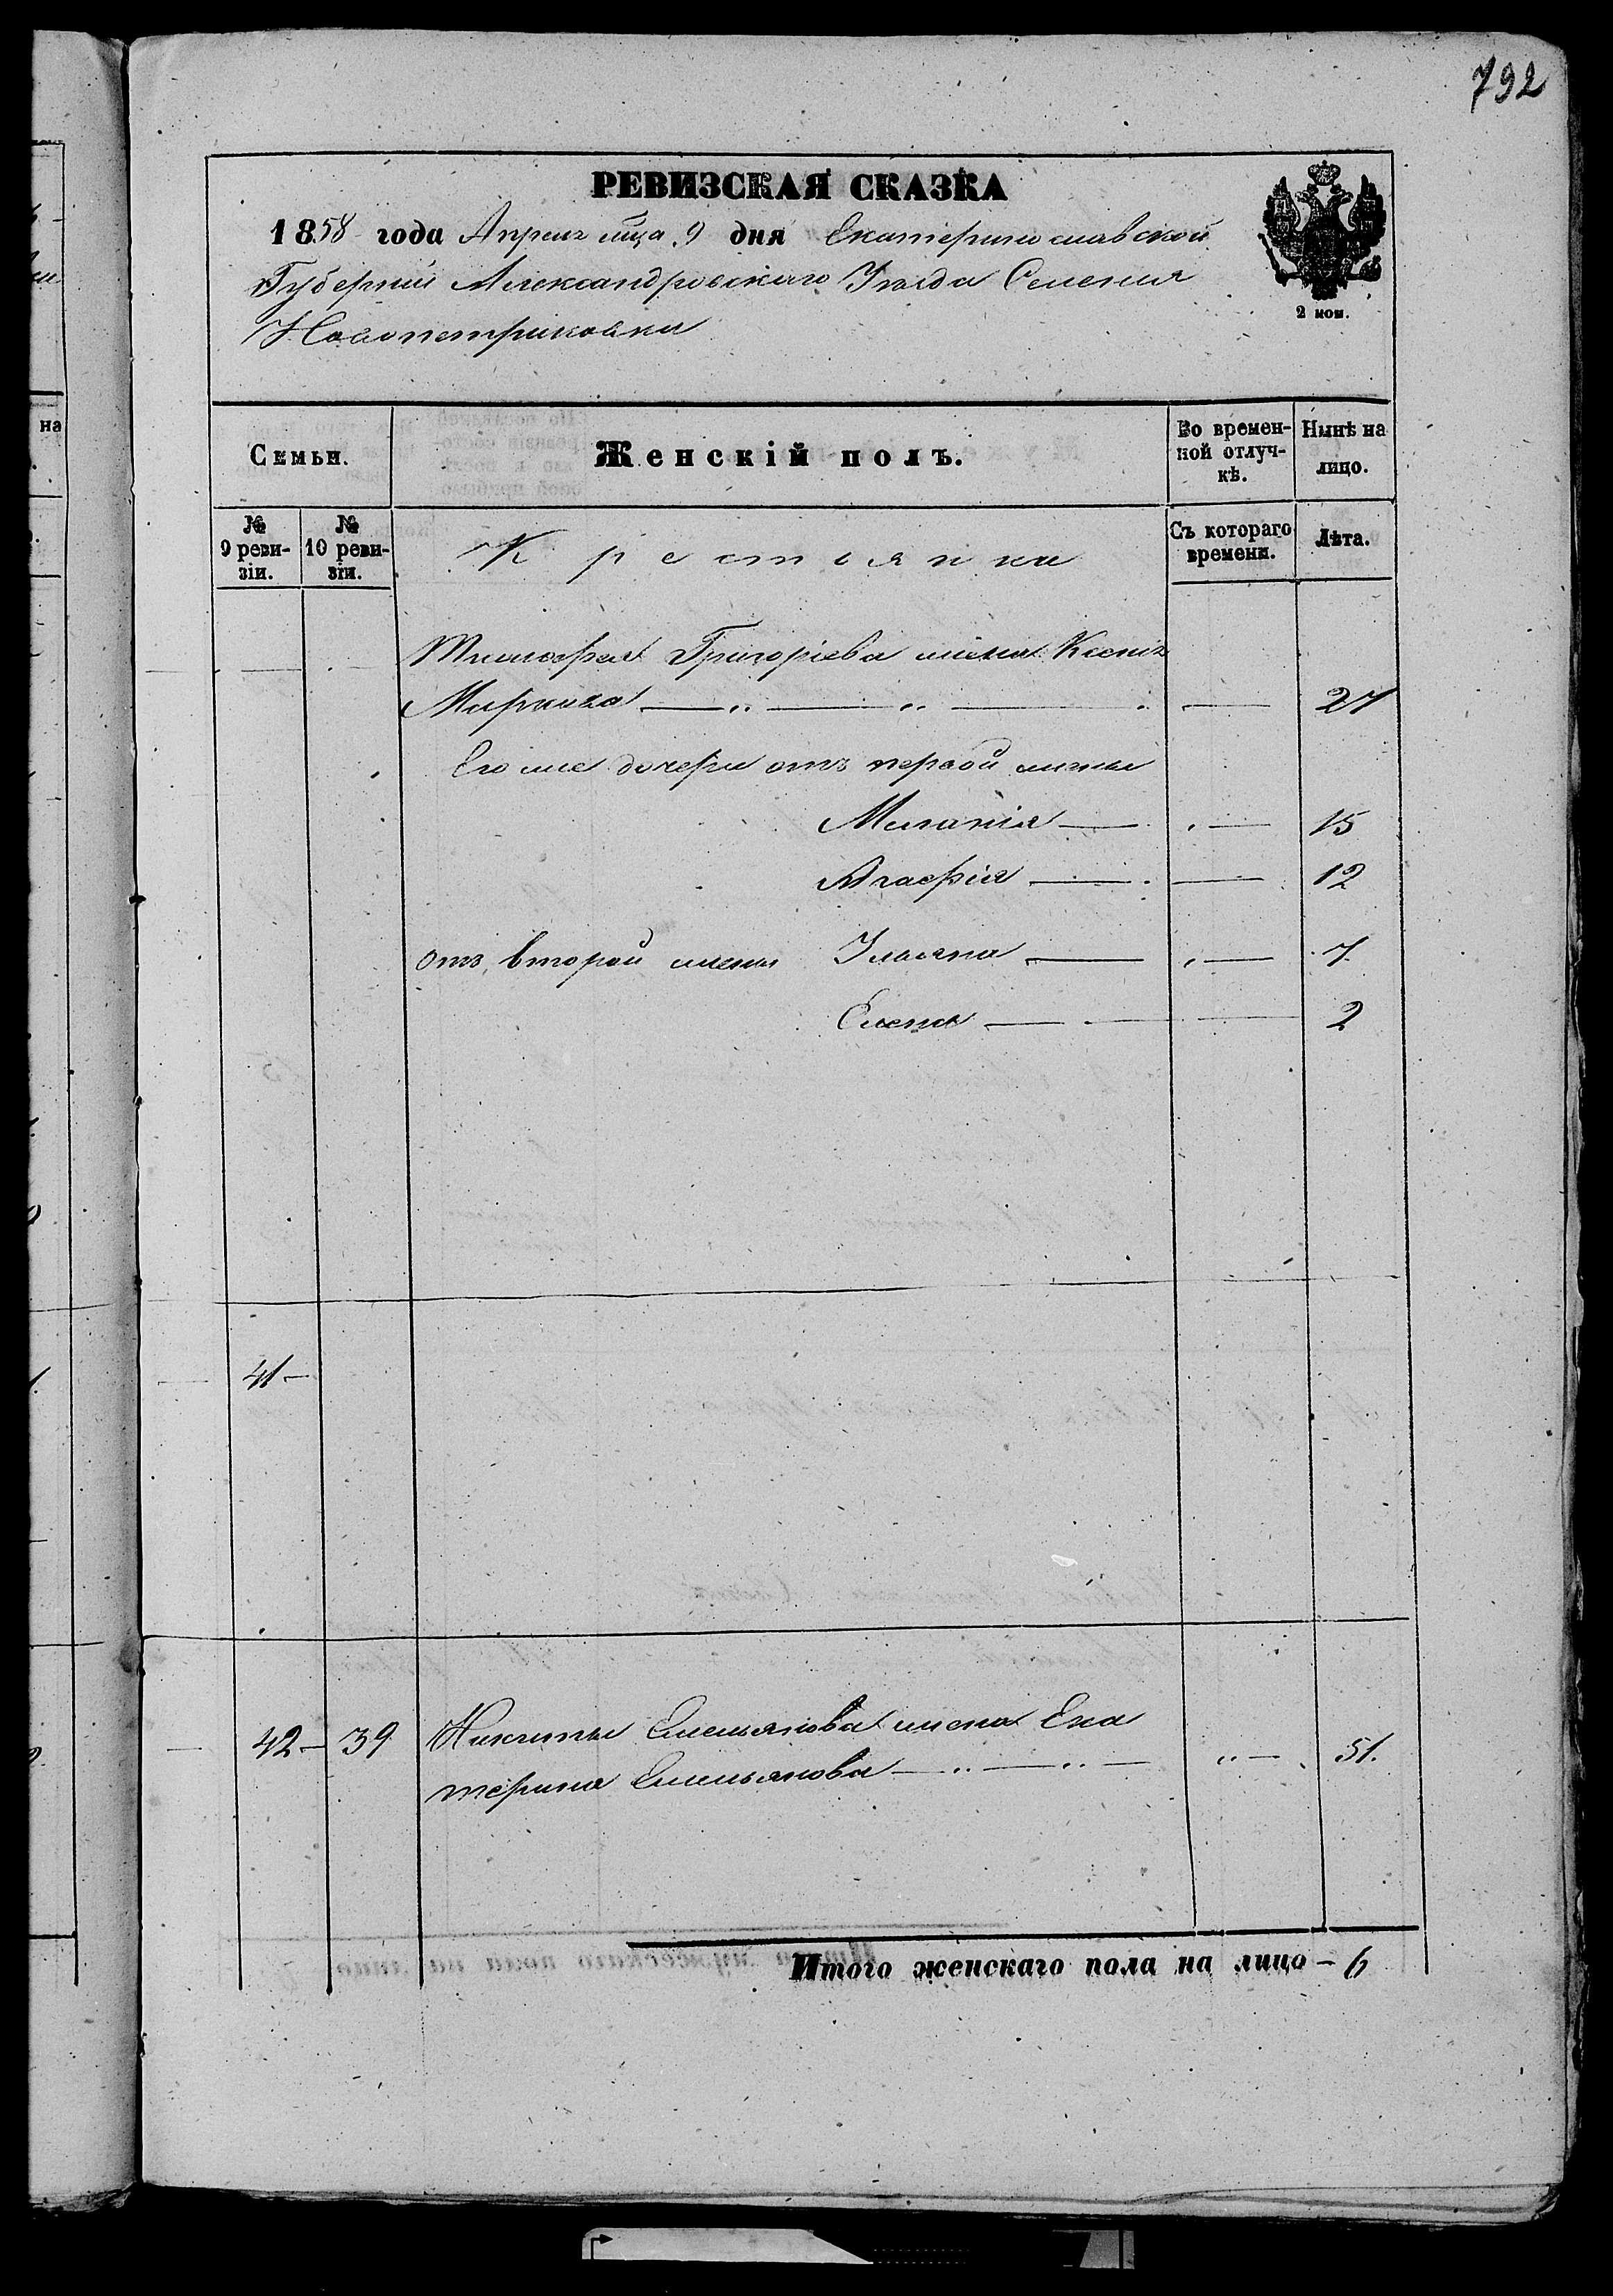 792
РЕВИЗСКАЯ СКАЗКА
1858 года Апреля мца 9 дня Екатеринославской
Губернии Александровскаго Уезда Селения
Новопетриковки
2 коп.
Семьи.
Женскій полъ.
Во времен-
ной отлуч-
кѣ.
Нынѣ на
лицо.
№
9 реви-
зіи.
№
10 реви-
зіи.
Крестьянки
Съ котораго
времени.
Лѣта.
на
Тимофея Григоріева жена Ксенія
Маркова — „ — „ — 27
Его же дочери отъ первой жены
Миланія — 15
Агафія — 12
отъ второй жены Ульяна — 7
Елена — 2
41 —
42 — 39 Никиты Емельянова жена Ека
терина Емельянова — „ — „ — „ — 51.
Итого женскаго пола на лицо — 6